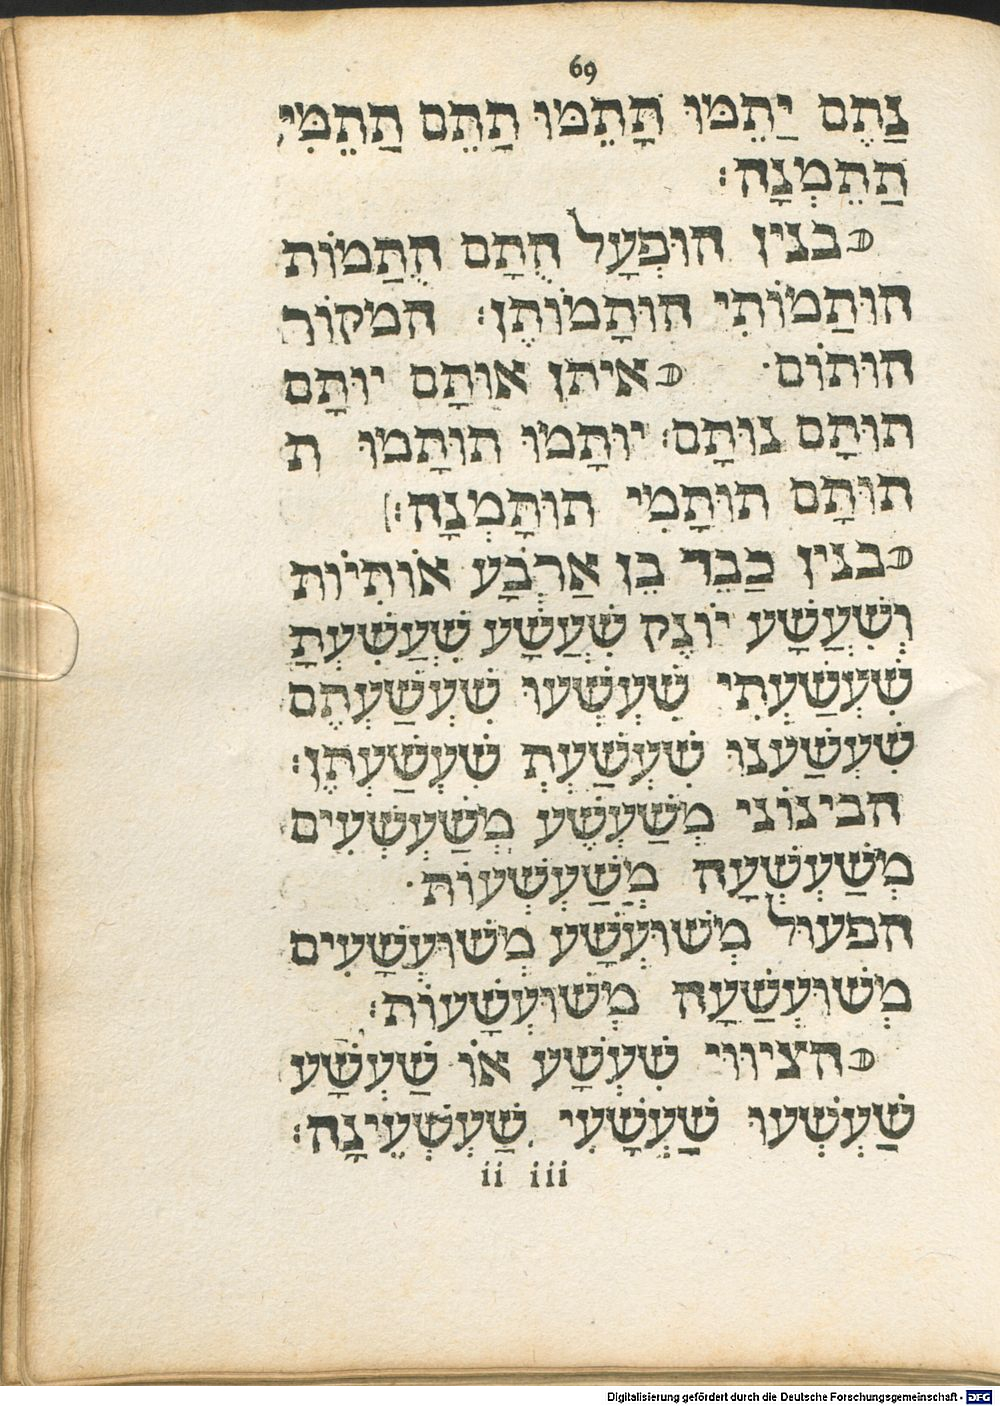 69
נַתֵם יַתֵמּוּ תָּתֵמּוּ תַתֵּם תַתֵמִּי׳
תַתֵמְנָה׃
בנין הוּפְעָל הֻתָם הֻתַמוֹת
הוּתַמוֹתִי הוּתָמוֹתֶן׃ המקוֹר
הוּתוֹם· איתן אוּתָם יוּתָם
תוּתָם נוּתָם׃ יוּתָמוּ תוּתָמוּ ת
תוּתָם תוּתָמִי תוּתָמְנָה׃)
בנין כַבֵד בֵן אַרְבָע אוֹתִיוֹת
וְשִׁעֲשָׁע יוֹנֵק שִׁעֲשָׁע שִׁעֲשַׁעְתָ
שִׁעְשַׁעְתִי שִׁעְשְׁעוּ שִׁעְשַׁעְתֶם
שִׁעְשַׁענוּ שִׁעְשַׁעְתְ שִׁעְשַׁעְתֶן׃
הבינוֹני מְשַׁעְשֵׁע מְשַׁעְשְׁעִים
מְשַׁעְשְׁעָה מְשַׁעְשְׁעוֹת·
הפעוּל מְשׁוּעְשָׁע מְשׁוּעְשָׁעִים
מְשׁוּעְשַׁעָה מְשׁוּעְשָׁעוֹת׃
הציווי שִׁעְשָׁע אוֹ שַׁעְשָׁע
שַׁעְשְׁעוּ שַׁעְשָׁעִי שַׁעְשְׁעֵינָה׃
ii iii
Digitalisierung gefördert durch die Deutsche Forschungsgemeinschaft - DFG